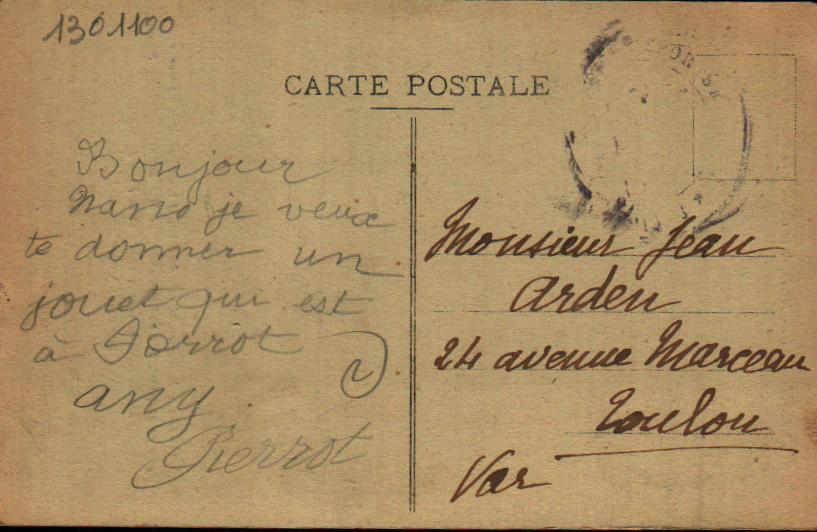 1301100
CARTE POSTALE
Bonjour
Nano je veux
te donner un
jouet qui est
à Pierrot
any
Pierrot
Monsieur Jean
Arden
24 avenue Marceau
Toulon
Var